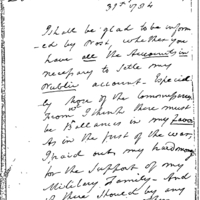 31st 1784
I shall be glad to be inform
-ed by Post, whether you
have all the Accounts in
necessary to settle my
Publick account. Especial
by those of the Commissaries
from I think there must
be Ballances in my favor
As in the first of the war,
I paid out my hard money
for the Support of my
Military Family. And
if there should be any